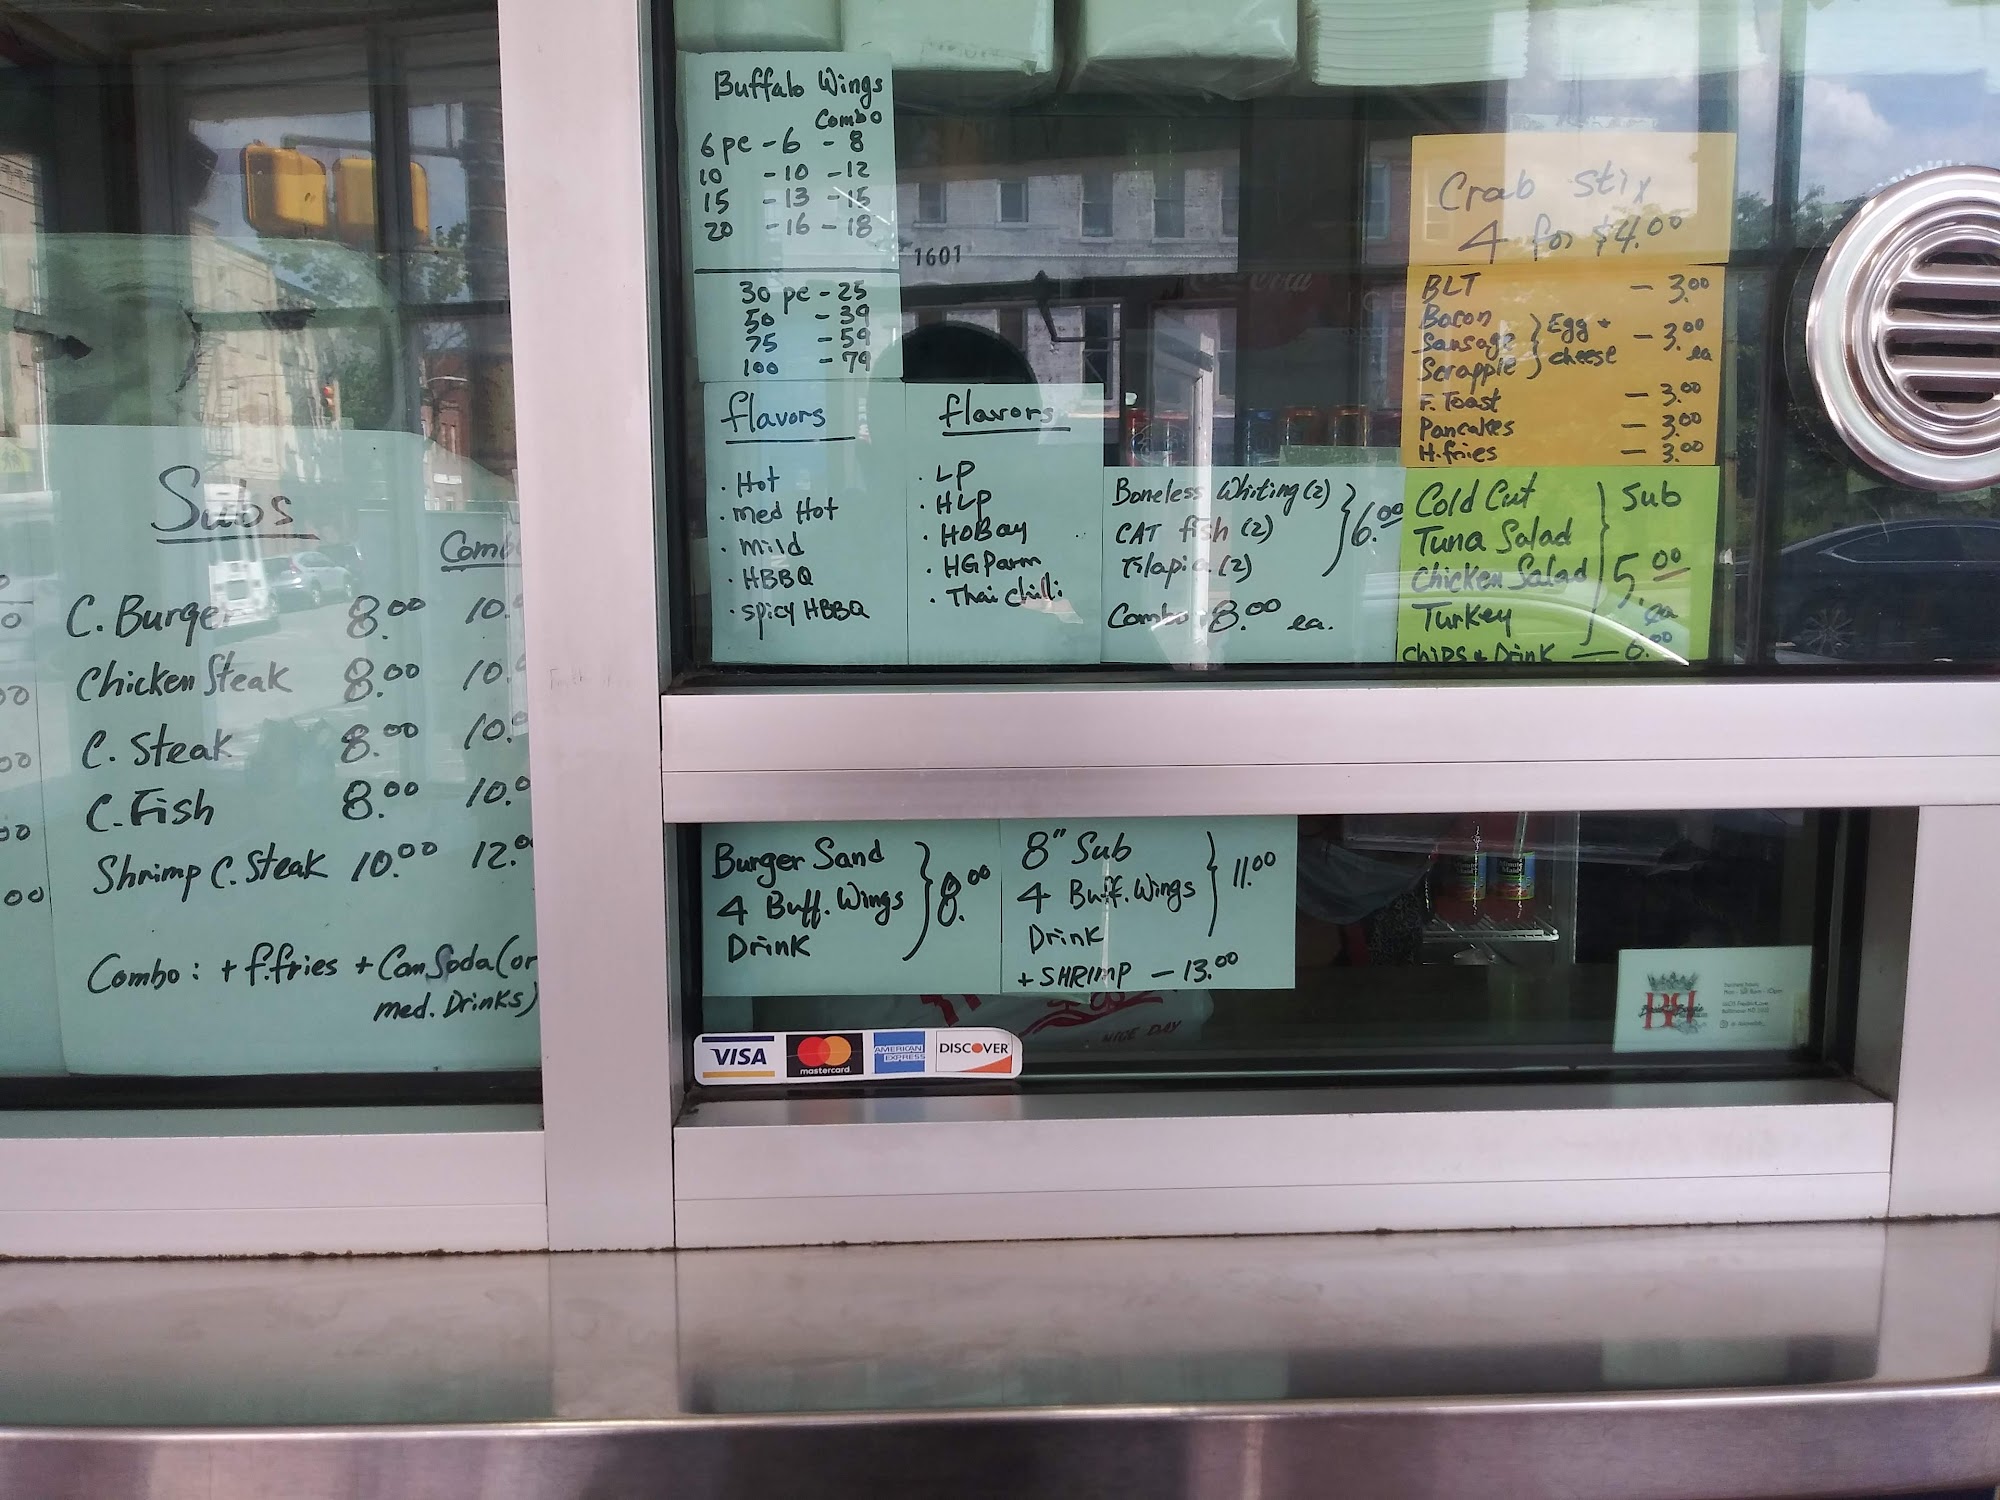 Subs
Comb
C. Burger 8.00 10.
Chicken Steak 8.00 10.
C. Steak 8.00 10.0
C. Fish 8.00 10.0
Shrimp C. Steak 10.00 12.0
Combo : + f.fries + Can Soda (or
med. Drinks)
Buffalo Wings
Combo
6 pc - 6 - 8
10 - 10 - 12
15 - 13 - 15
20 - 16 - 18
30 pc - 25
50 - 39
75 - 59
100 - 79
1601
flavors
. Hot
. med Hot
. mild
. HBBQ
. spicy HBBQ
flavors
. LP
. HLP
. HOBay
. HGParm
. Thai chilli
Boneless Whiting (2) } 6.00
CAT fish (2)
Tilapia (2)
Combo : 8.00 ea.
Crab stix
4 for $4.00
BLT - 3.00
Bacon
Sausage } Egg + cheese - 3.00 ea
Scrapple
F. Toast - 3.00
Pancakes - 3.00
H. fries - 3.00
Cold Cut } Sub
Tuna Salad
Chicken Salad 5.00
Turkey ea
Chips + Drink - 6.00
Burger Sand
4 Buff. Wings } 8.00
Drink
8" Sub
4 Buff. Wings } 11.00
Drink
+ SHRIMP - 13.00
NICE DAY
VISA
mastercard
AMERICAN EXPRESS
DISCOVER